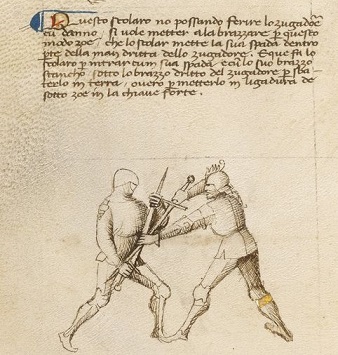 Questo scolaro no possando ferire lo zugadore
cu danno, si vole metter a la brazzare p questo
modo zoe, che lo scolar mette la sua spada dentro
pte della man dritta dello zugadore. E questi lo
scolaro p intrar cum sua spada e cu lo suo brazzo
stancho sotto lo brazzo dritto del zugadore p sba-
terlo in terra, overo p metterlo in ligadura de
sotto zoe in la chiave forte.